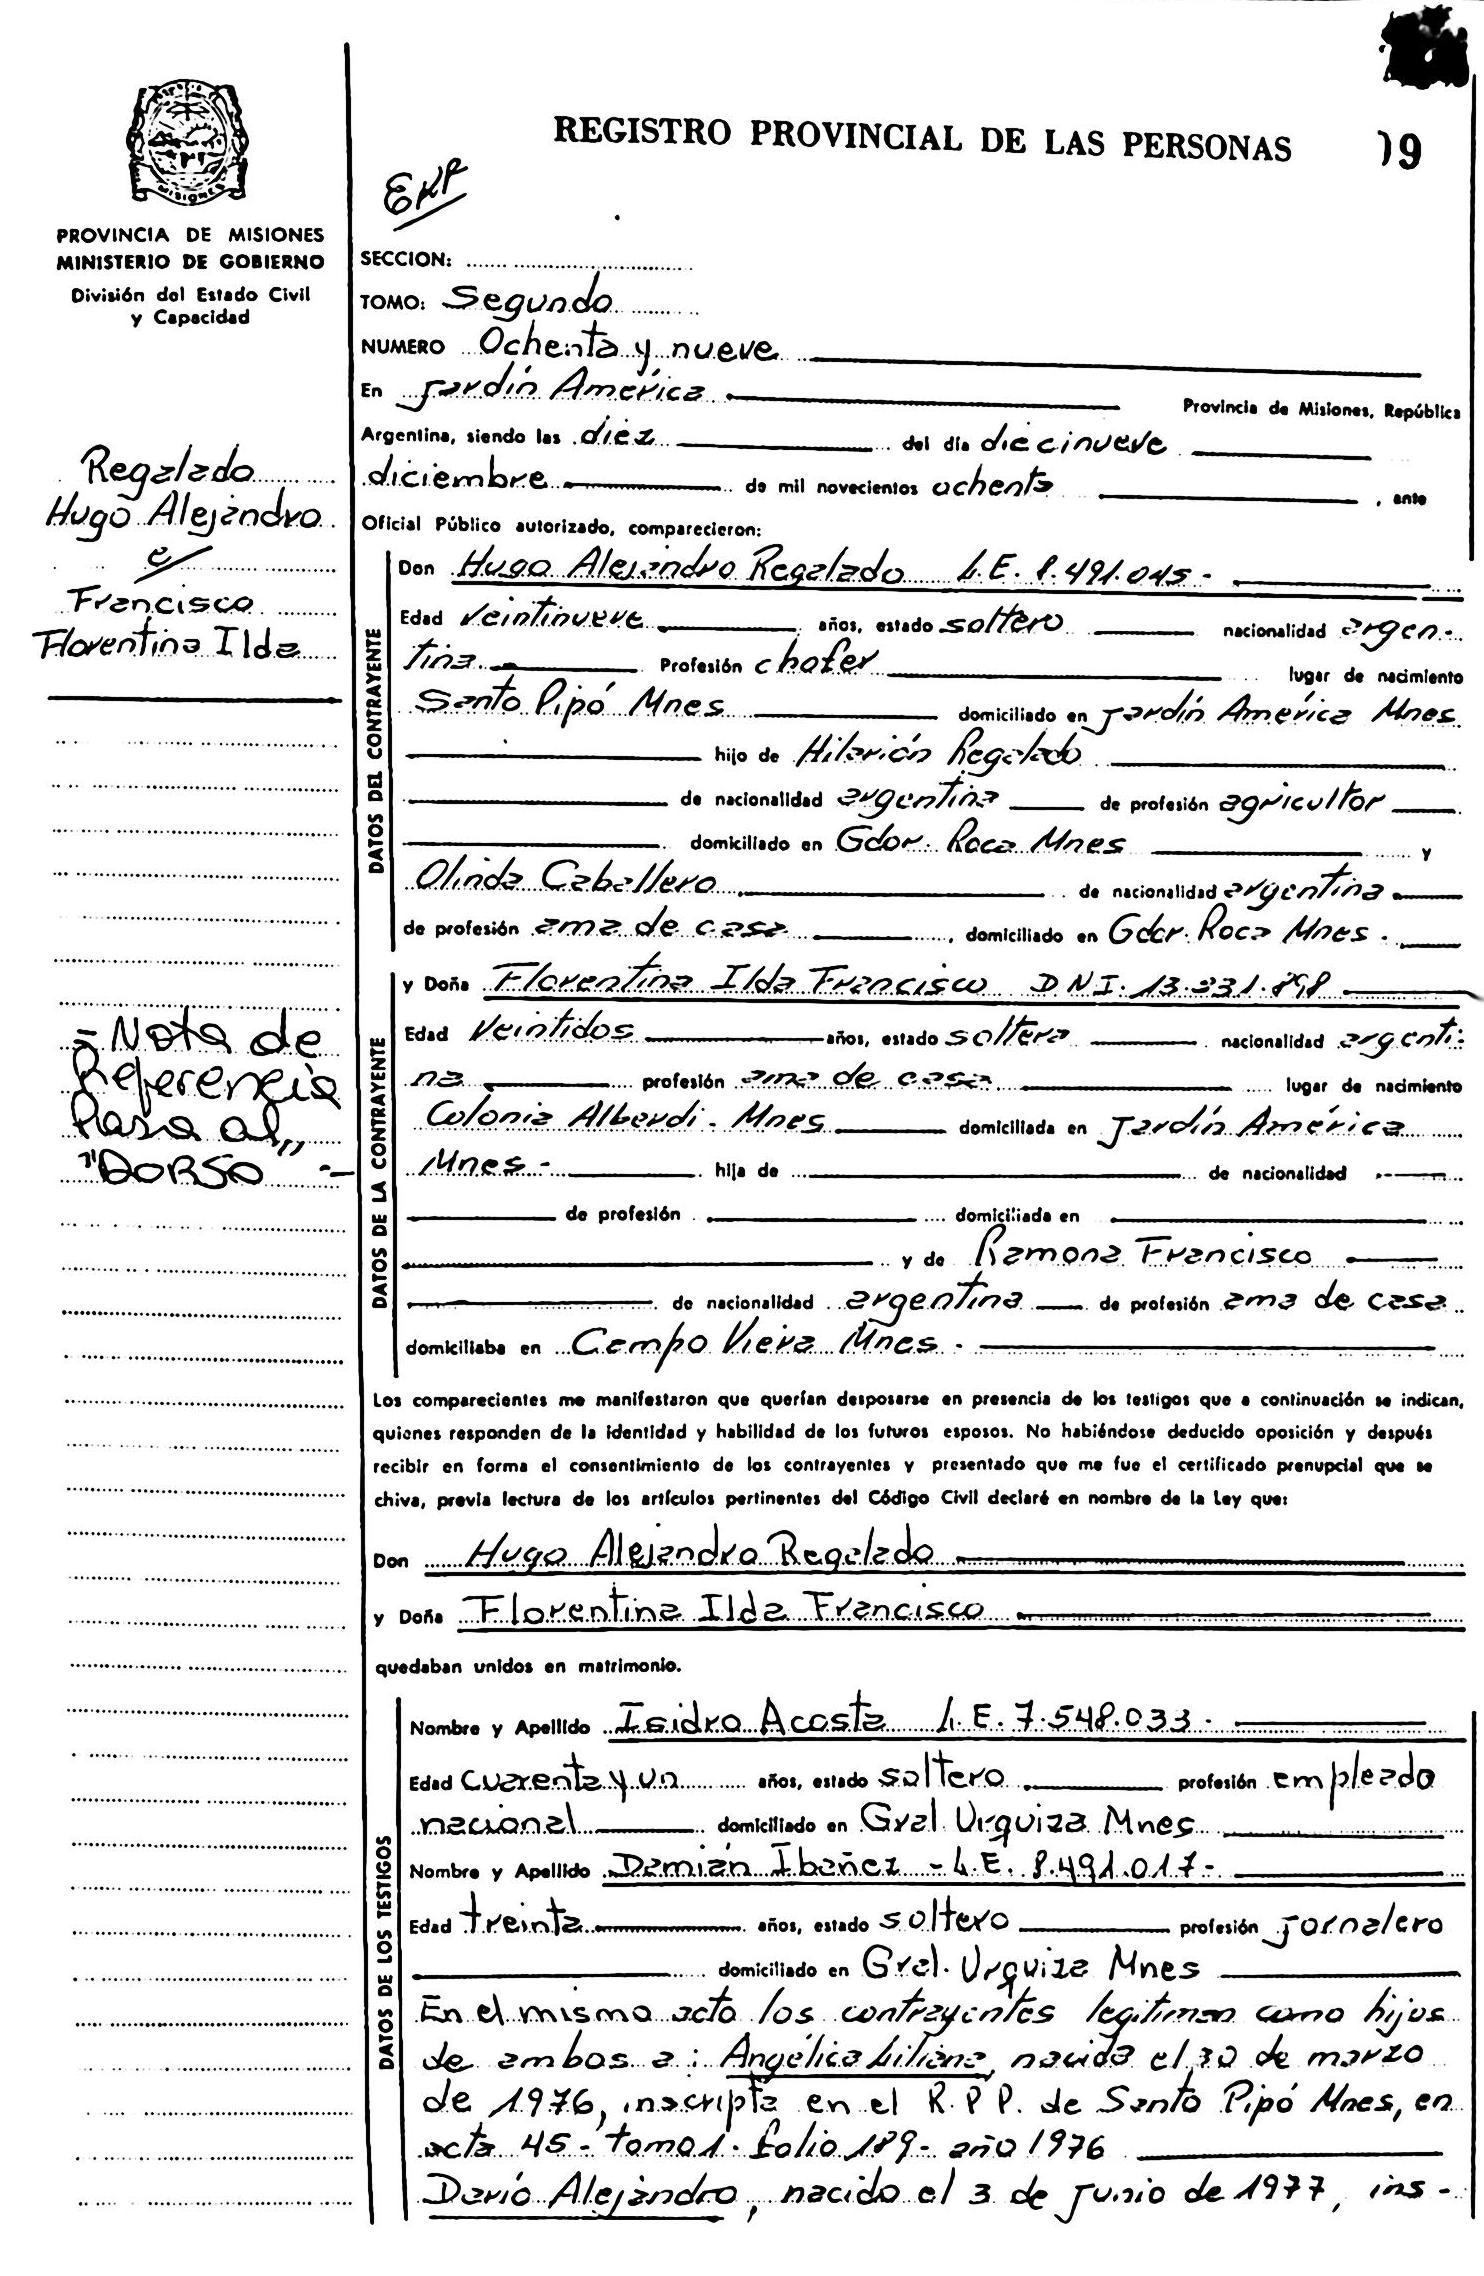 REGISTRO PROVINCIAL DE LAS PERSONAS
09
MISIONES
PROVINCIA DE MISIONES
MINISTERIO DE GOBIERNO
División del Estado Civil
y Capacidad
SECCION:
TOMO: Segundo
NUMERO Ochenta y nueve
En Jardín América Provincia de Misiones, República
Argentina, siendo las diez del día diecinueve
diciembre de mil novecientos ochenta , ante
Oficial Público autorizado, comparecieron:
Regalado
Hugo Alejandro
c/
Francisco
Florentina Ilda
DATOS DEL CONTRAYENTE
Don Hugo Alejandro Regalado L.E. 8.491.045-
Edad Veintinueve años, estado soltero nacionalidad argen-
tina. Profesión chofer lugar de nacimiento
Santo Pipó Mnes domiciliado en Jardín América Mnes
hijo de Hilarión Regalado
de nacionalidad argentina de profesión agricultor
domiciliado en Gdor. Roca Mnes y
Olinda Caballero de nacionalidad argentina
de profesión ama de casa , domiciliado en Gdor. Roca Mnes.
DATOS DE LA CONTRAYENTE
y Doña Florentina Ilda Francisco D N I. 13.231.898
Edad Veintidos años, estado soltera nacionalidad argenti-
na profesión ama de casa lugar de nacimiento
Colonia Alberdi. Mnes domiciliada en Jardín América
Mnes- hija de de nacionalidad
de profesión domiciliada en
y de Ramona Francisco
de nacionalidad argentina de profesión ama de casa
domiciliaba en Campo Viera Mnes.
=Nota de
Referencia
Pasa al
"DORSO" -
Los comparecientes me manifestaron que querían desposarse en presencia de los testigos que a continuación se indican,
quienes responden de la identidad y habilidad de los futuros esposos. No habiéndose deducido oposición y después
recibir en forma el consentimiento de los contrayentes y presentado que me fue el certificado prenupcial que se
chiva, previa lectura de los artículos pertinentes del Código Civil declaré en nombre de la Ley que:
Don Hugo Alejandro Regalado
y Doña Florentina Ilda Francisco
quedaban unidos en matrimonio.
DATOS DE LOS TESTIGOS
Nombre y Apellido Isidro Acosta L.E. 7.548.033-
Edad cuarenta y un años, estado soltero profesión empleado
nacional domiciliado en Gral Urquiza Mnes
Nombre y Apellido Damián Ibañez - L.E. 8.491.017-
Edad treinta años, estado soltero profesión jornalero
domiciliado en Gral. Urquiza Mnes
En el mismo acto los contrayentes legitiman como hijos
de ambos a: Angélica Liliana, nacida el 30 de marzo
de 1976, inscripta en el R.P.P. de Santo Pipó Mnes, en
acta 45- tomo 1- folio 189- año 1976
Darío Alejandro, nacido el 3 de Junio de 1977, ins-